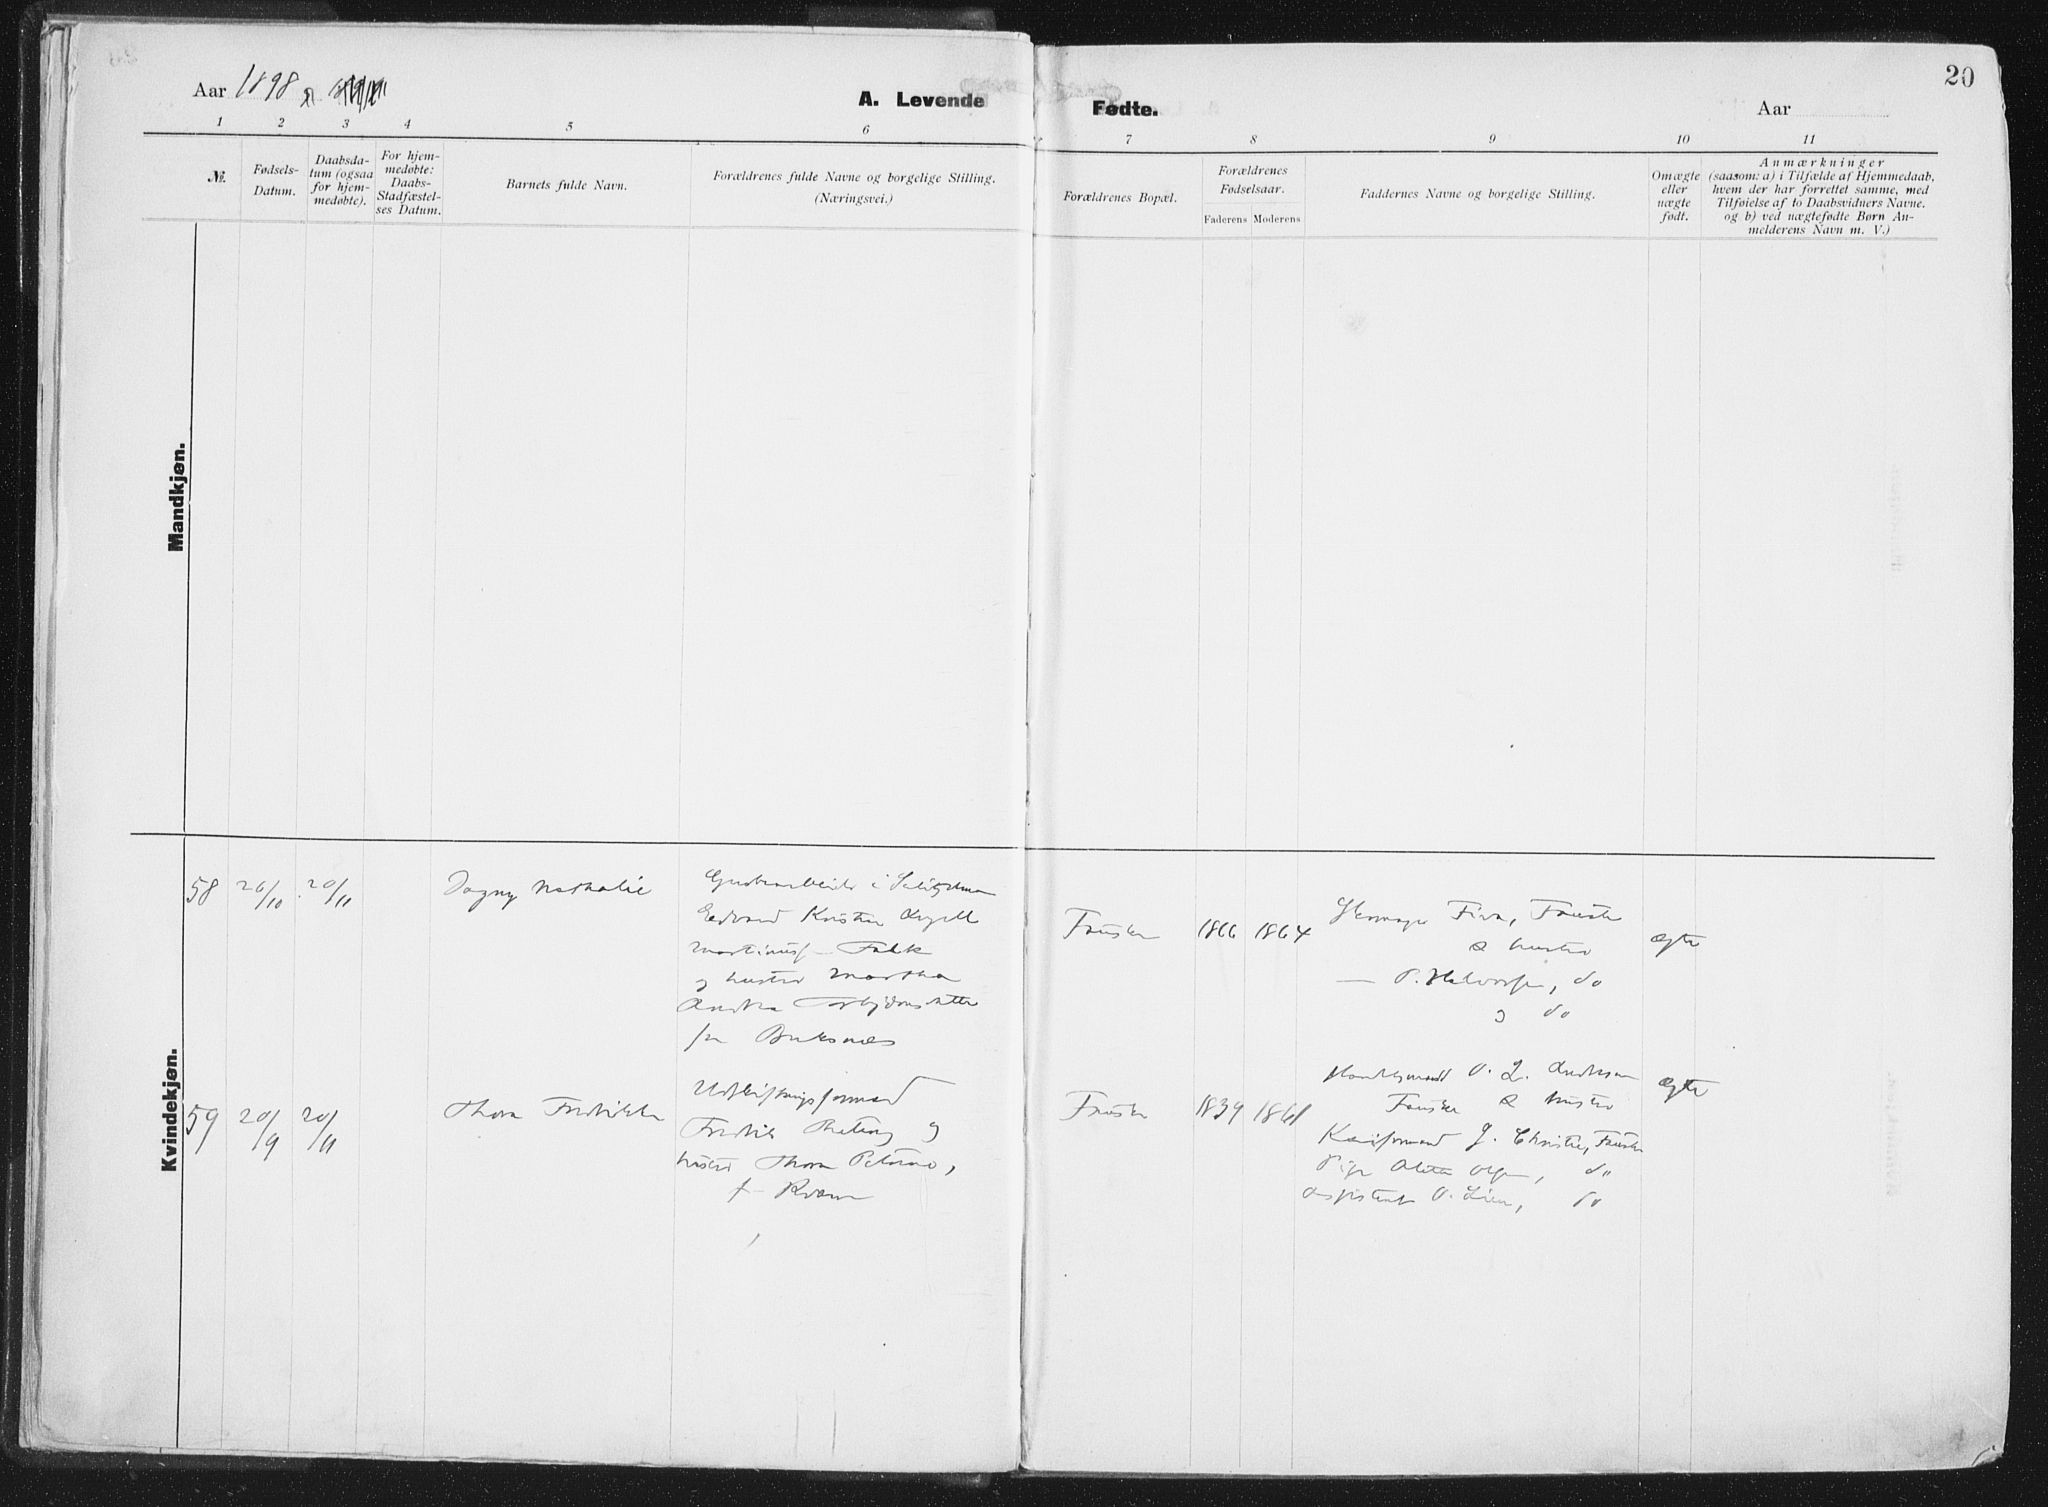 Aar 1898
A. Levende
1 2 3 4 5 6
№.
Fødsels-
Datum.
Daabsda-
tum (ogsaa
for hjem-
medøbte).
For hjem-
medøbte:
Daabs-
Stadfæstel-
ses Datum.
Barnets fulde Navn.
Forældrenes fulde Navne og borgelige Stilling.
(Næringsvei.)
Mandkjøn.
Kvindekjøn.
58 26/10 20/11 Dagny Nathalie
Edvard Kristian
Falk
og hustru Martha
Andrea
fra Buksnæs
59 20/9 20/11 Thora Fredrikke
Udskiftningsformand
Fredrik og
hustru Thora Petrine,
f. Kvam
20
Fødte.
Aar
7 8 9 10 11
Forældrenes Bopæl.
Forældrenes
Fødselsaar.
Faderens Moderens
Faddernes Navne og borgelige Stilling.
Omægte
eller
uægte
født.
Anmærkninger
(saasom: a) i Tilfælde af Hjemmedaab,
hvem der har forrettet samme, med
Tilføielse af to Daabsvidners Navne.
og b) ved uægtefødte Børn An-
melderens Navn m. V.)
Fauske 1866 1864 Fauske ægte
& hustru
— P. Halvorsen, do
og do
Handelsmand O. L. Andersen ægte
Fauske 1839 1861 Fauske & hustru
Kaiformand J. Christie, Fauske
Pige Olsen, do
Assistent O. Lien, do